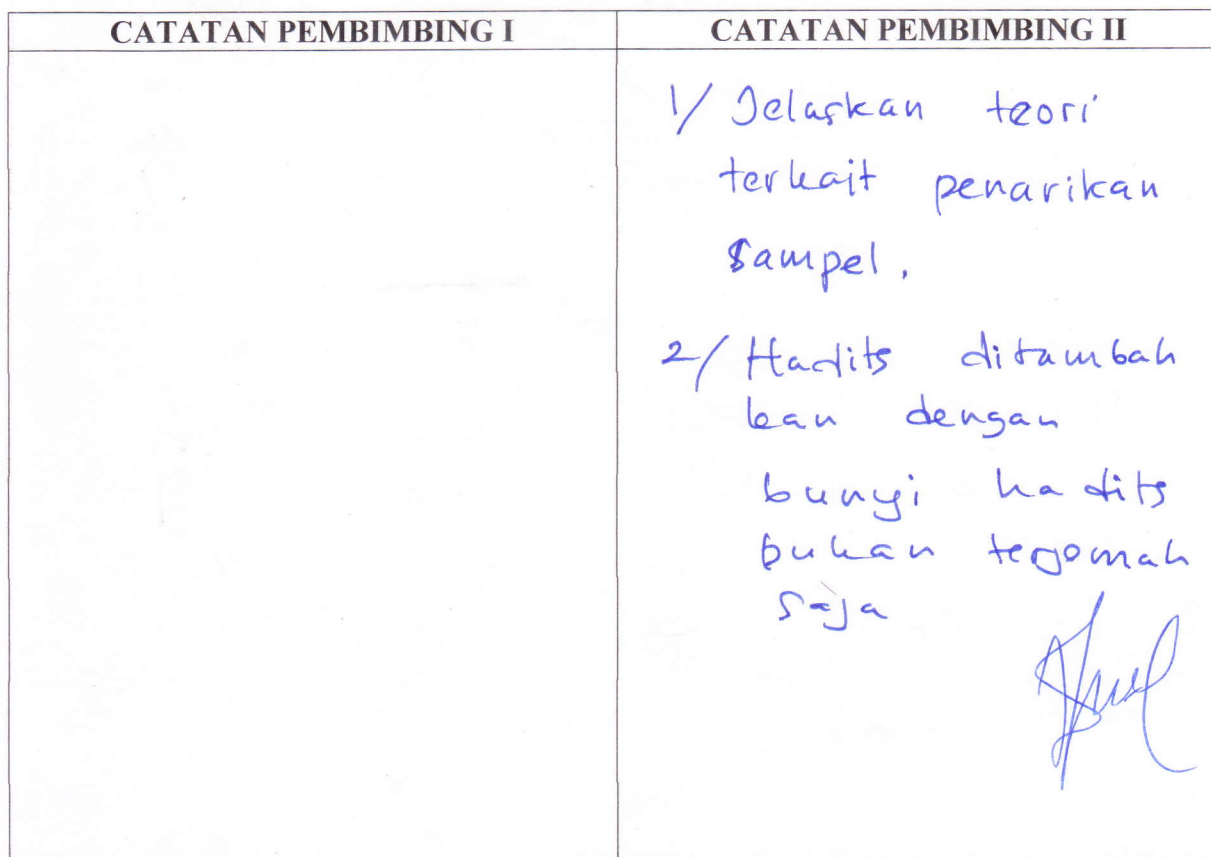 CATATAN PEMBIMBING I
CATATAN PEMBIMBING II
1/ Jelaskan teori
terkait penarikan
sampel.
2/ Hadits ditambah
kan dengan
bunyi hadits
bukan terjemah
saja